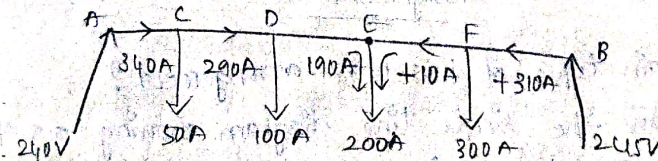 A C D E F B
340A 290A 190A +10A +310A
240V 50A 100A 200A 300A 245V